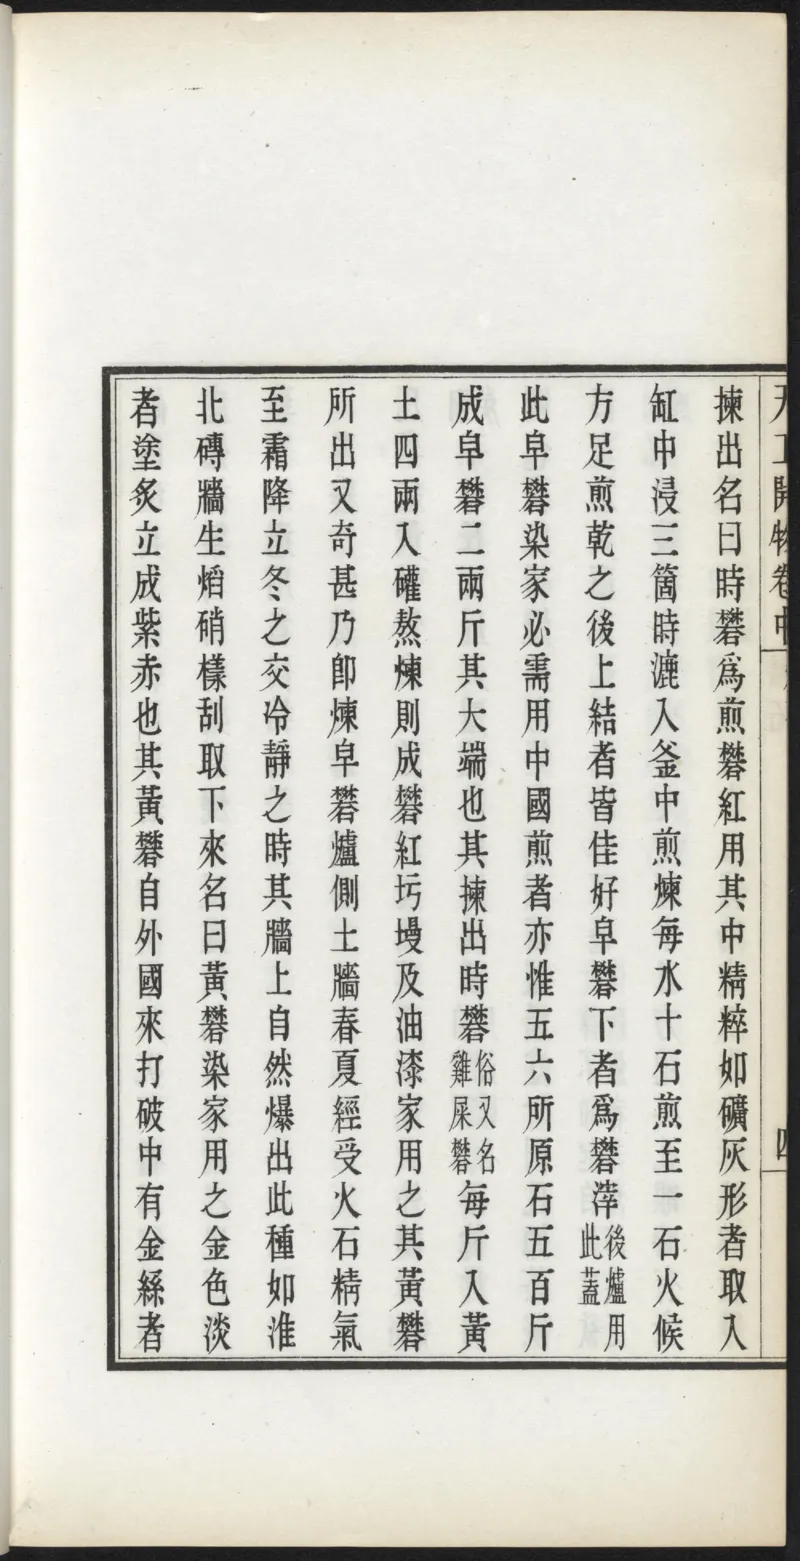 天工開物卷中
四
揀出名曰時礬爲煎礬紅用其中精粹如礦灰形者取入
缸中浸三箇時漉入釜中煎煉每水十石煎至一石火候
方足煎乾之後上結者皆佳好皁礬下者爲礬滓後爐用此蓋
此皁礬染家必需用中國煎者亦惟五六所原石五百斤
成皁礬二兩斤其大端也其揀出時礬俗又名雞屎礬每斤入黃
土四兩入礶熬煉則成礬紅圬墁及油漆家用之其黃礬
所出又奇甚乃卽煉皁礬爐側土牆春夏經受火石精氣
至霜降立冬之交冷靜之時其牆上自然爆出此種如淮
北磚牆生熖硝樣刮取下來名曰黃礬染家用之金色淡
者塗炙立成紫赤也其黃礬自外國來打破中有金絲者